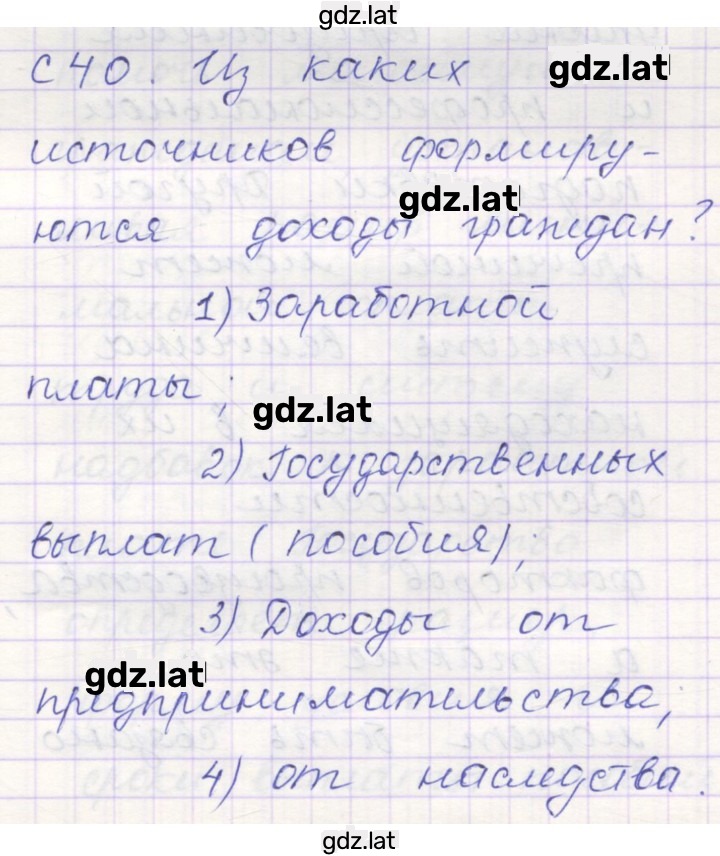 gdz.lat
С 40. Из каких gdz.lat
источников формиру-
gdz.lat
ются доходы граждан?
1) Заработной
платы;
gdz.lat
2) Государственных
выплат (пособия);
3) Доходы от
gdz.lat
предпринимательства;
4) от наследства.
gdz.lat